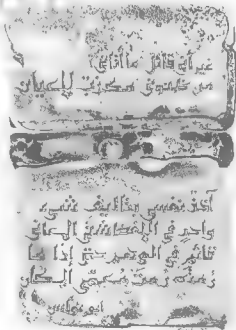 غير أني قائل ما أتاني
من ظنوني مكذب للعيان
آخذ نفسي بتأليف شيء
واحد في اللفظ شتى المعاني
قائم في الوهم حتى إذا ما
رمته رمت معمى المكان
أبو نواس